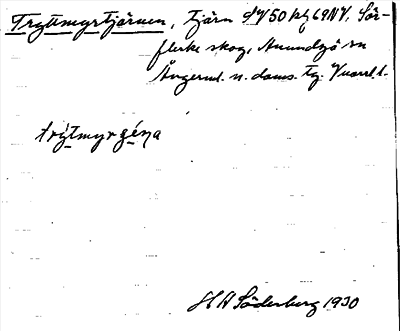 Tryttmyrtjärnen, tjärn dV50 bl. 69NV. Sör-
flerke skog, Anundsjö sn
Ångerml. n. doms. tg. Vnorrl. l.
trýtmyrǥę́ɳa
H A Söderberg 1930